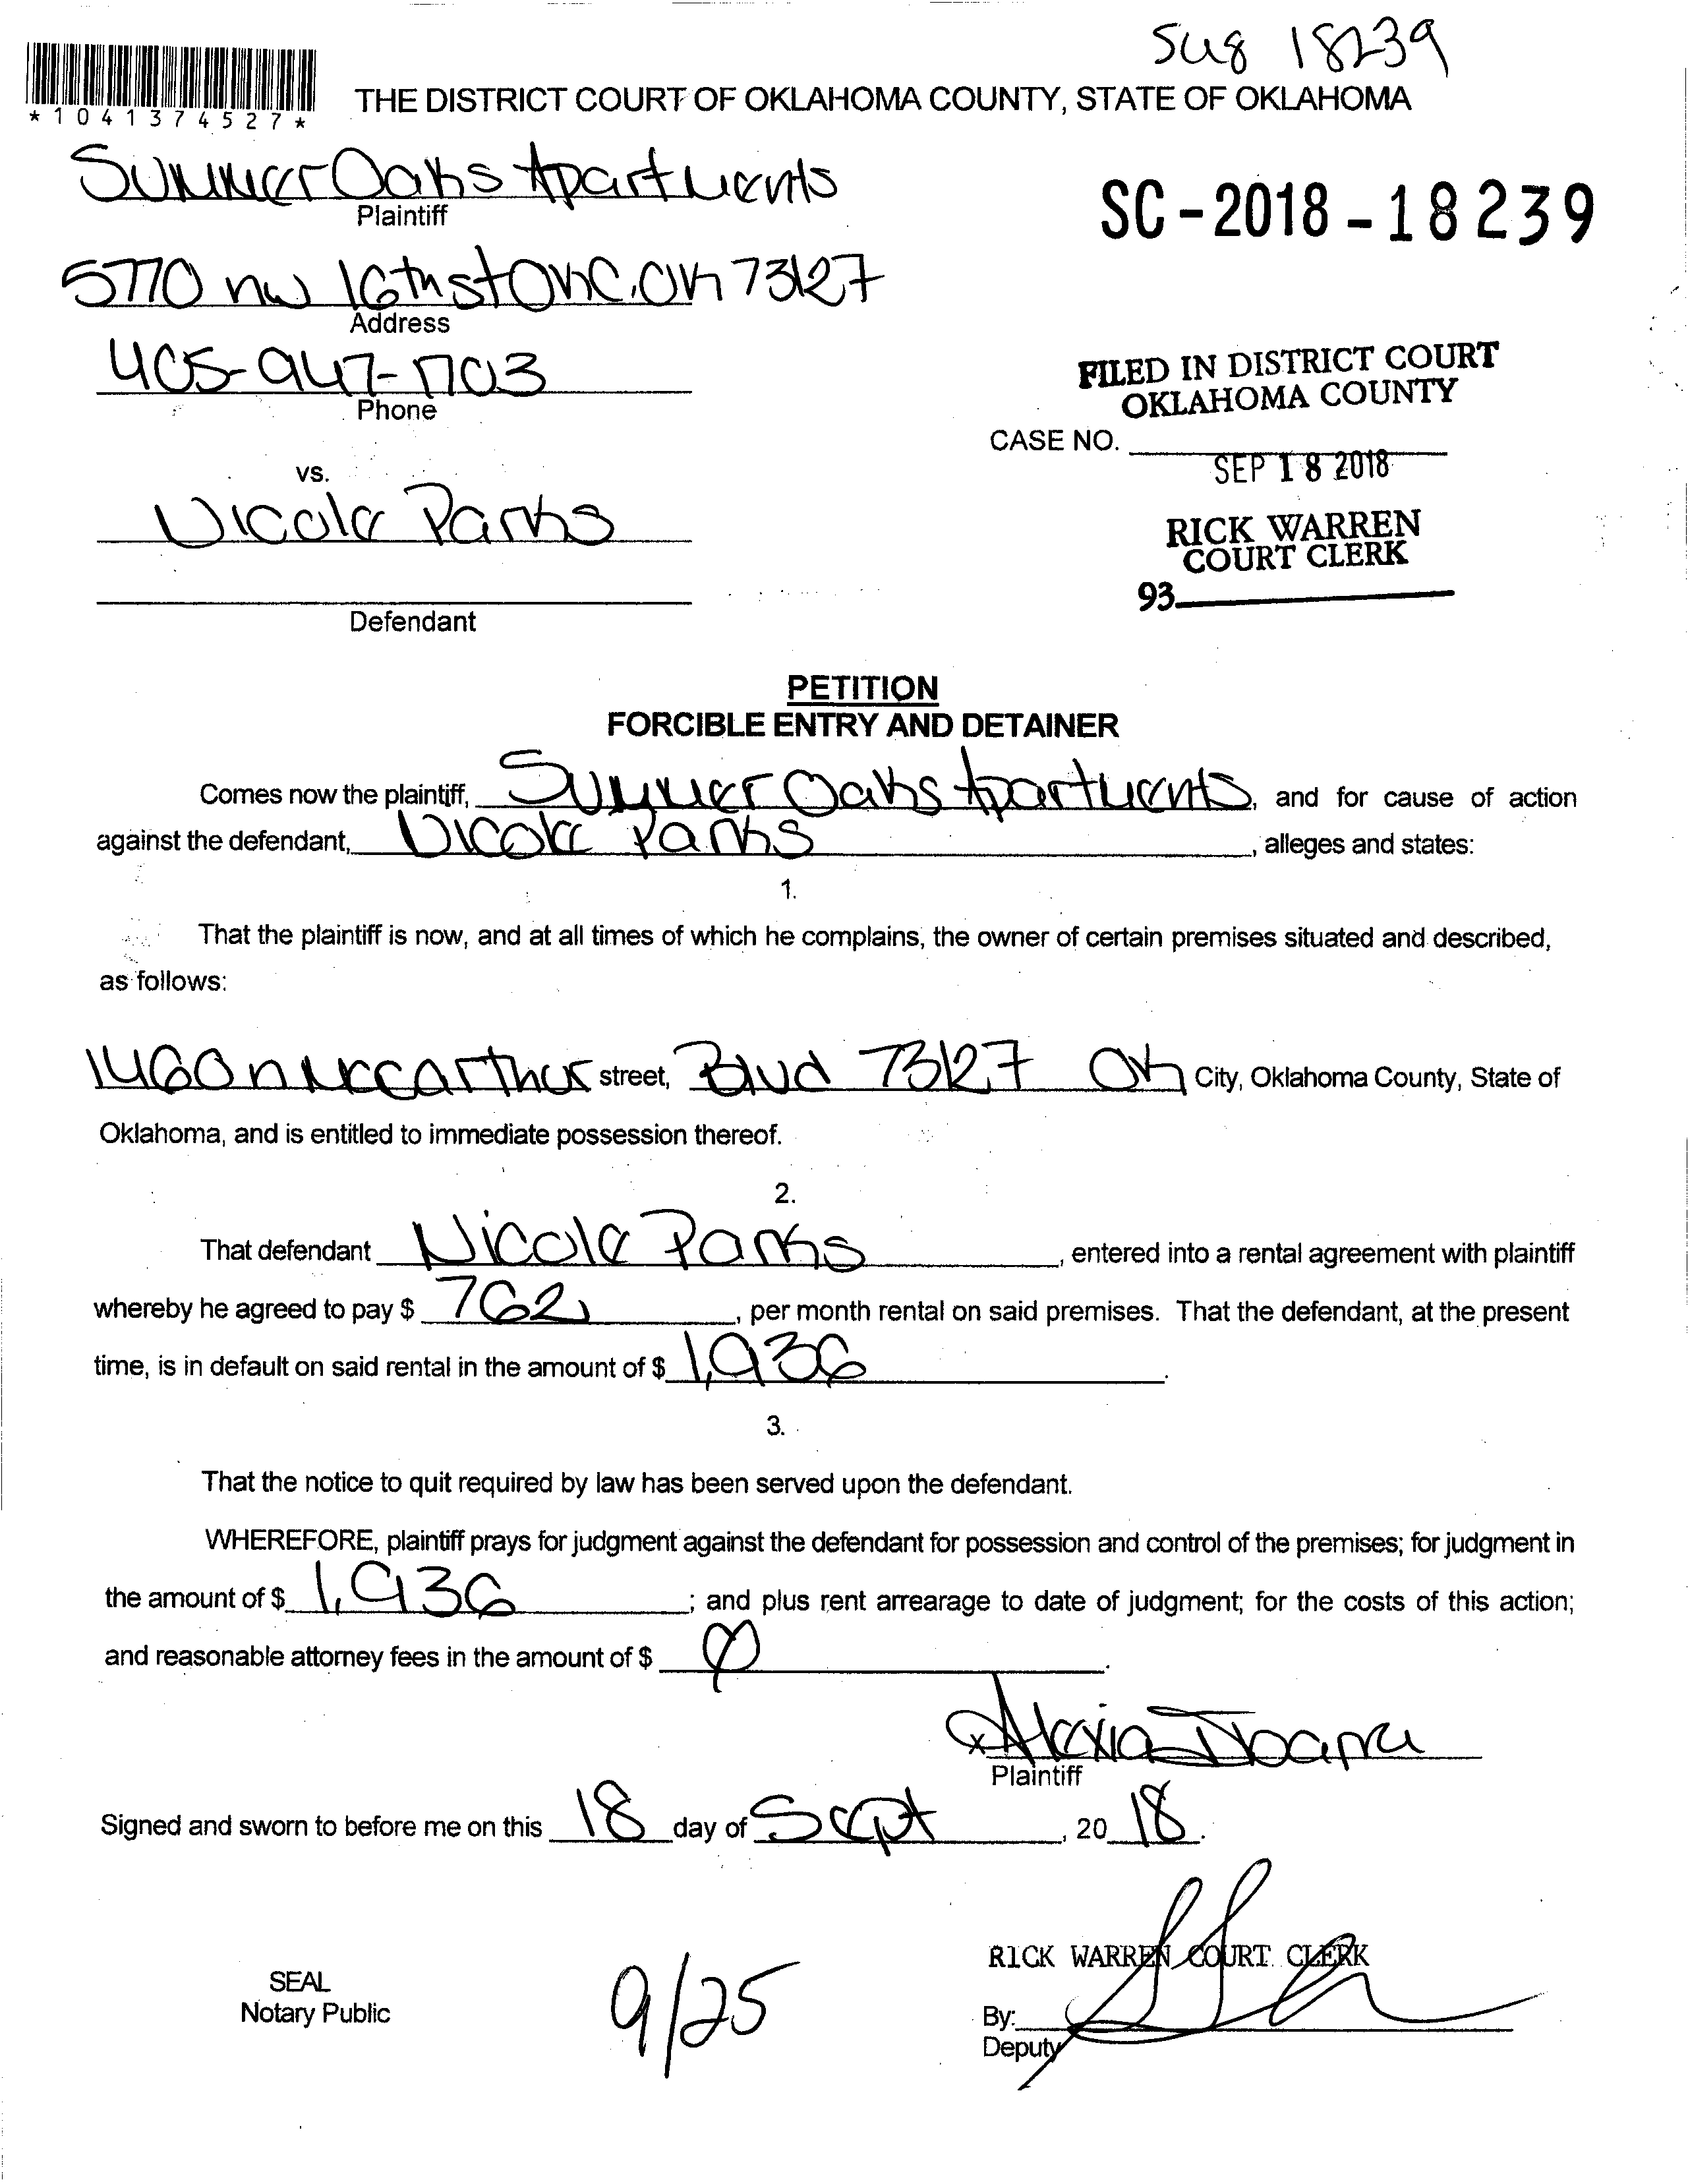 Sug 18239
*1041374527*
THE DISTRICT COURT OF OKLAHOMA COUNTY, STATE OF OKLAHOMA
Summer Oaks Apartments
Plaintiff
SC-2018-18239
5770 nw 16th st OKC. OK 73127
Address
405-947-1703
Phone
FILED IN DISTRICT COURT
OKLAHOMA COUNTY
CASE NO.
SEP 18 2018
vs.
Nicole Parks
RICK WARREN
COURT CLERK
93
Defendant
PETITION
FORCIBLE ENTRY AND DETAINER
Comes now the plaintiff, Summer Oaks Apartments, and for cause of action
against the defendant, Nicole Parks, alleges and states:
1.
That the plaintiff is now, and at all times of which he complains, the owner of certain premises situated and described,
as follows:
1460 n Mccarthur street, Blvd 73127 Ok City, Oklahoma County, State of
Oklahoma, and is entitled to immediate possession thereof.
2.
That defendant Nicole Parks, entered into a rental agreement with plaintiff
whereby he agreed to pay $ 762, per month rental on said premises. That the defendant, at the present
time, is in default on said rental in the amount of $ 1,936.
3.
That the notice to quit required by law has been served upon the defendant.
WHEREFORE, plaintiff prays for judgment against the defendant for possession and control of the premises; for judgment in
the amount of $ 1,936; and plus rent arrearage to date of judgment; for the costs of this action;
and reasonable attorney fees in the amount of $ 0.
x Alexia Ibarra
Plaintiff
Signed and sworn to before me on this 18 day of Sept, 20 18.
RICK WARREN COURT CLERK
SEAL
Notary Public
9/25
By:
Deputy